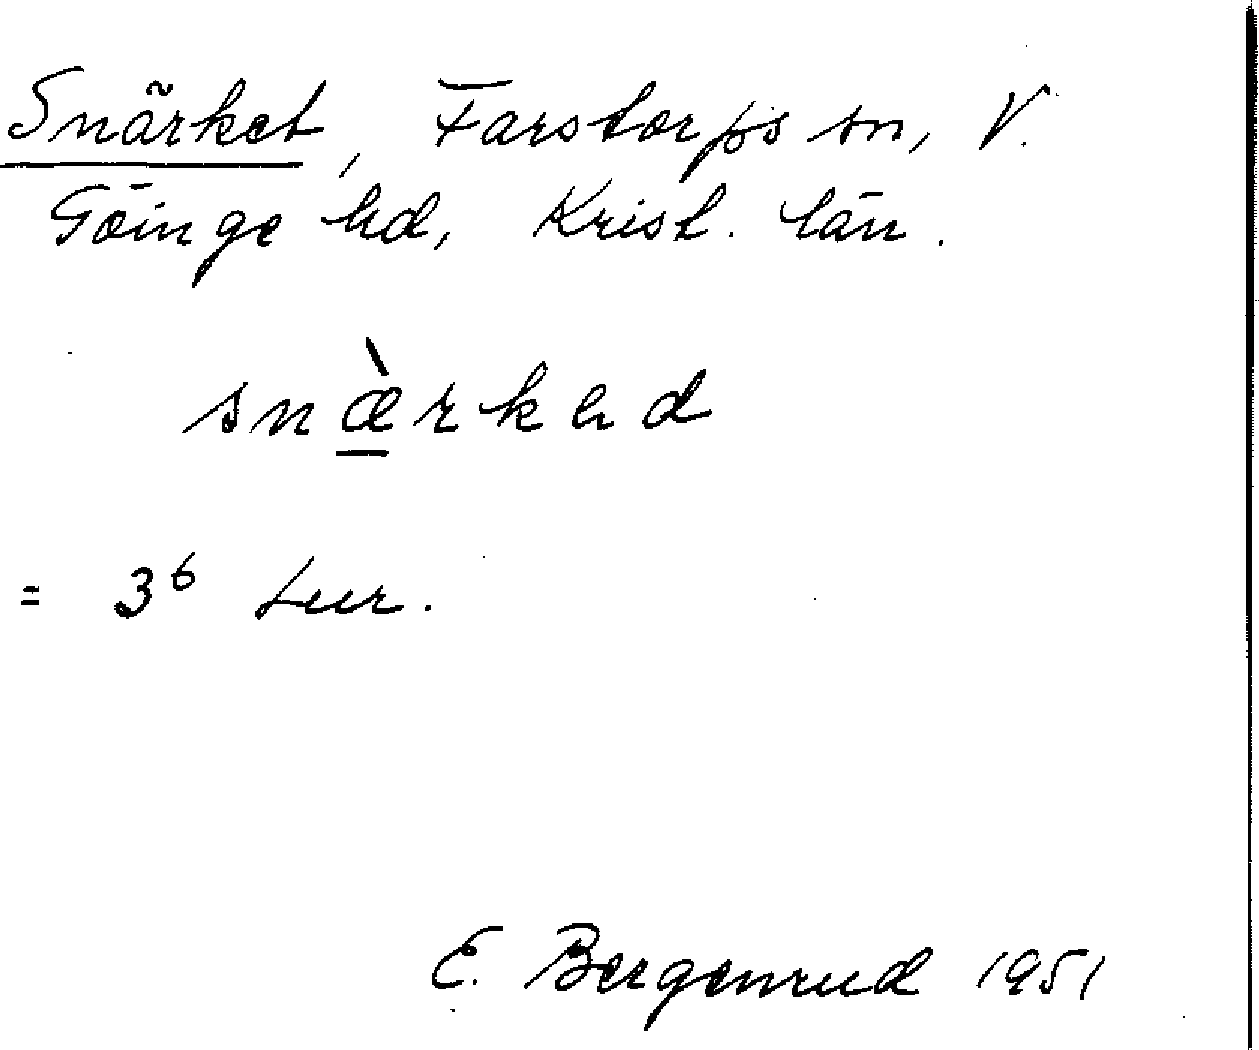 Snärket, Farstorps sn, V.
Göinge hd, Krist. län.
snæ̀rkəd
= 3⁶ Lur.
E. Bergenrud 1951